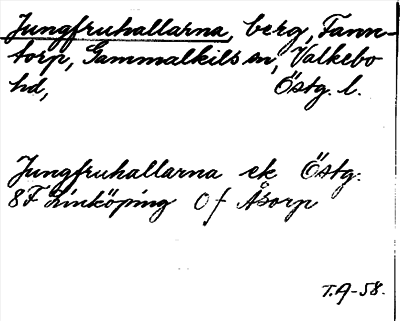 Jungfruhallarna, berg, Tann-
torp, Gammalkils sn, Valkebo
hd, Östg. l.
Jungfruhallarna ek Östg.
8F Linköping Of Åsorp
T.A-58.